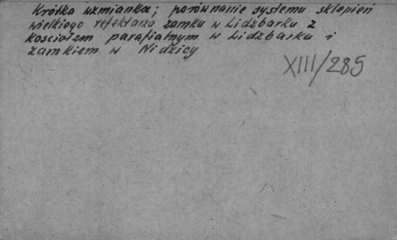 Krótka wzmianka; porównanie systemu sklepień
wielkiego refektarza zamku w Lidzbarku z
kościołem parafialnym w Lidzbarku i
zamkiem w Nidzicy
XIII/285